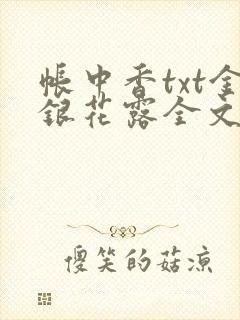 帳中香txt金
銀花露全文
傻笑的菇凉